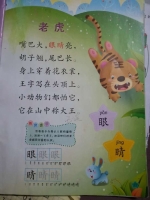 老虎
嘴巴大,眼睛亮,
奶子翘,尾巴长。
身上穿着花衣裳,
王字写在头顶上。
小动物们都怕它,
它在山中称大王。
王
yǎn
眼
jīng
睛
眼 眼 眼
睛 睛 睛